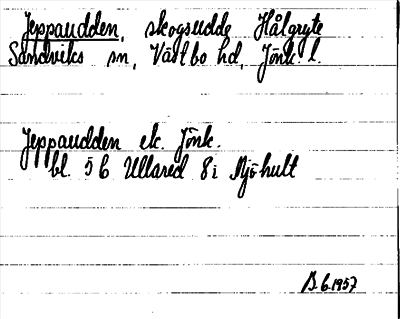 Jeppaudden, skogsudde Hålgryte
Sandviks sn, Västbo hd, Jönk. l.
Jeppaudden ek. Jönk.
bl. 5 C Ullared 8 i Nyhult
B. 6. 1957